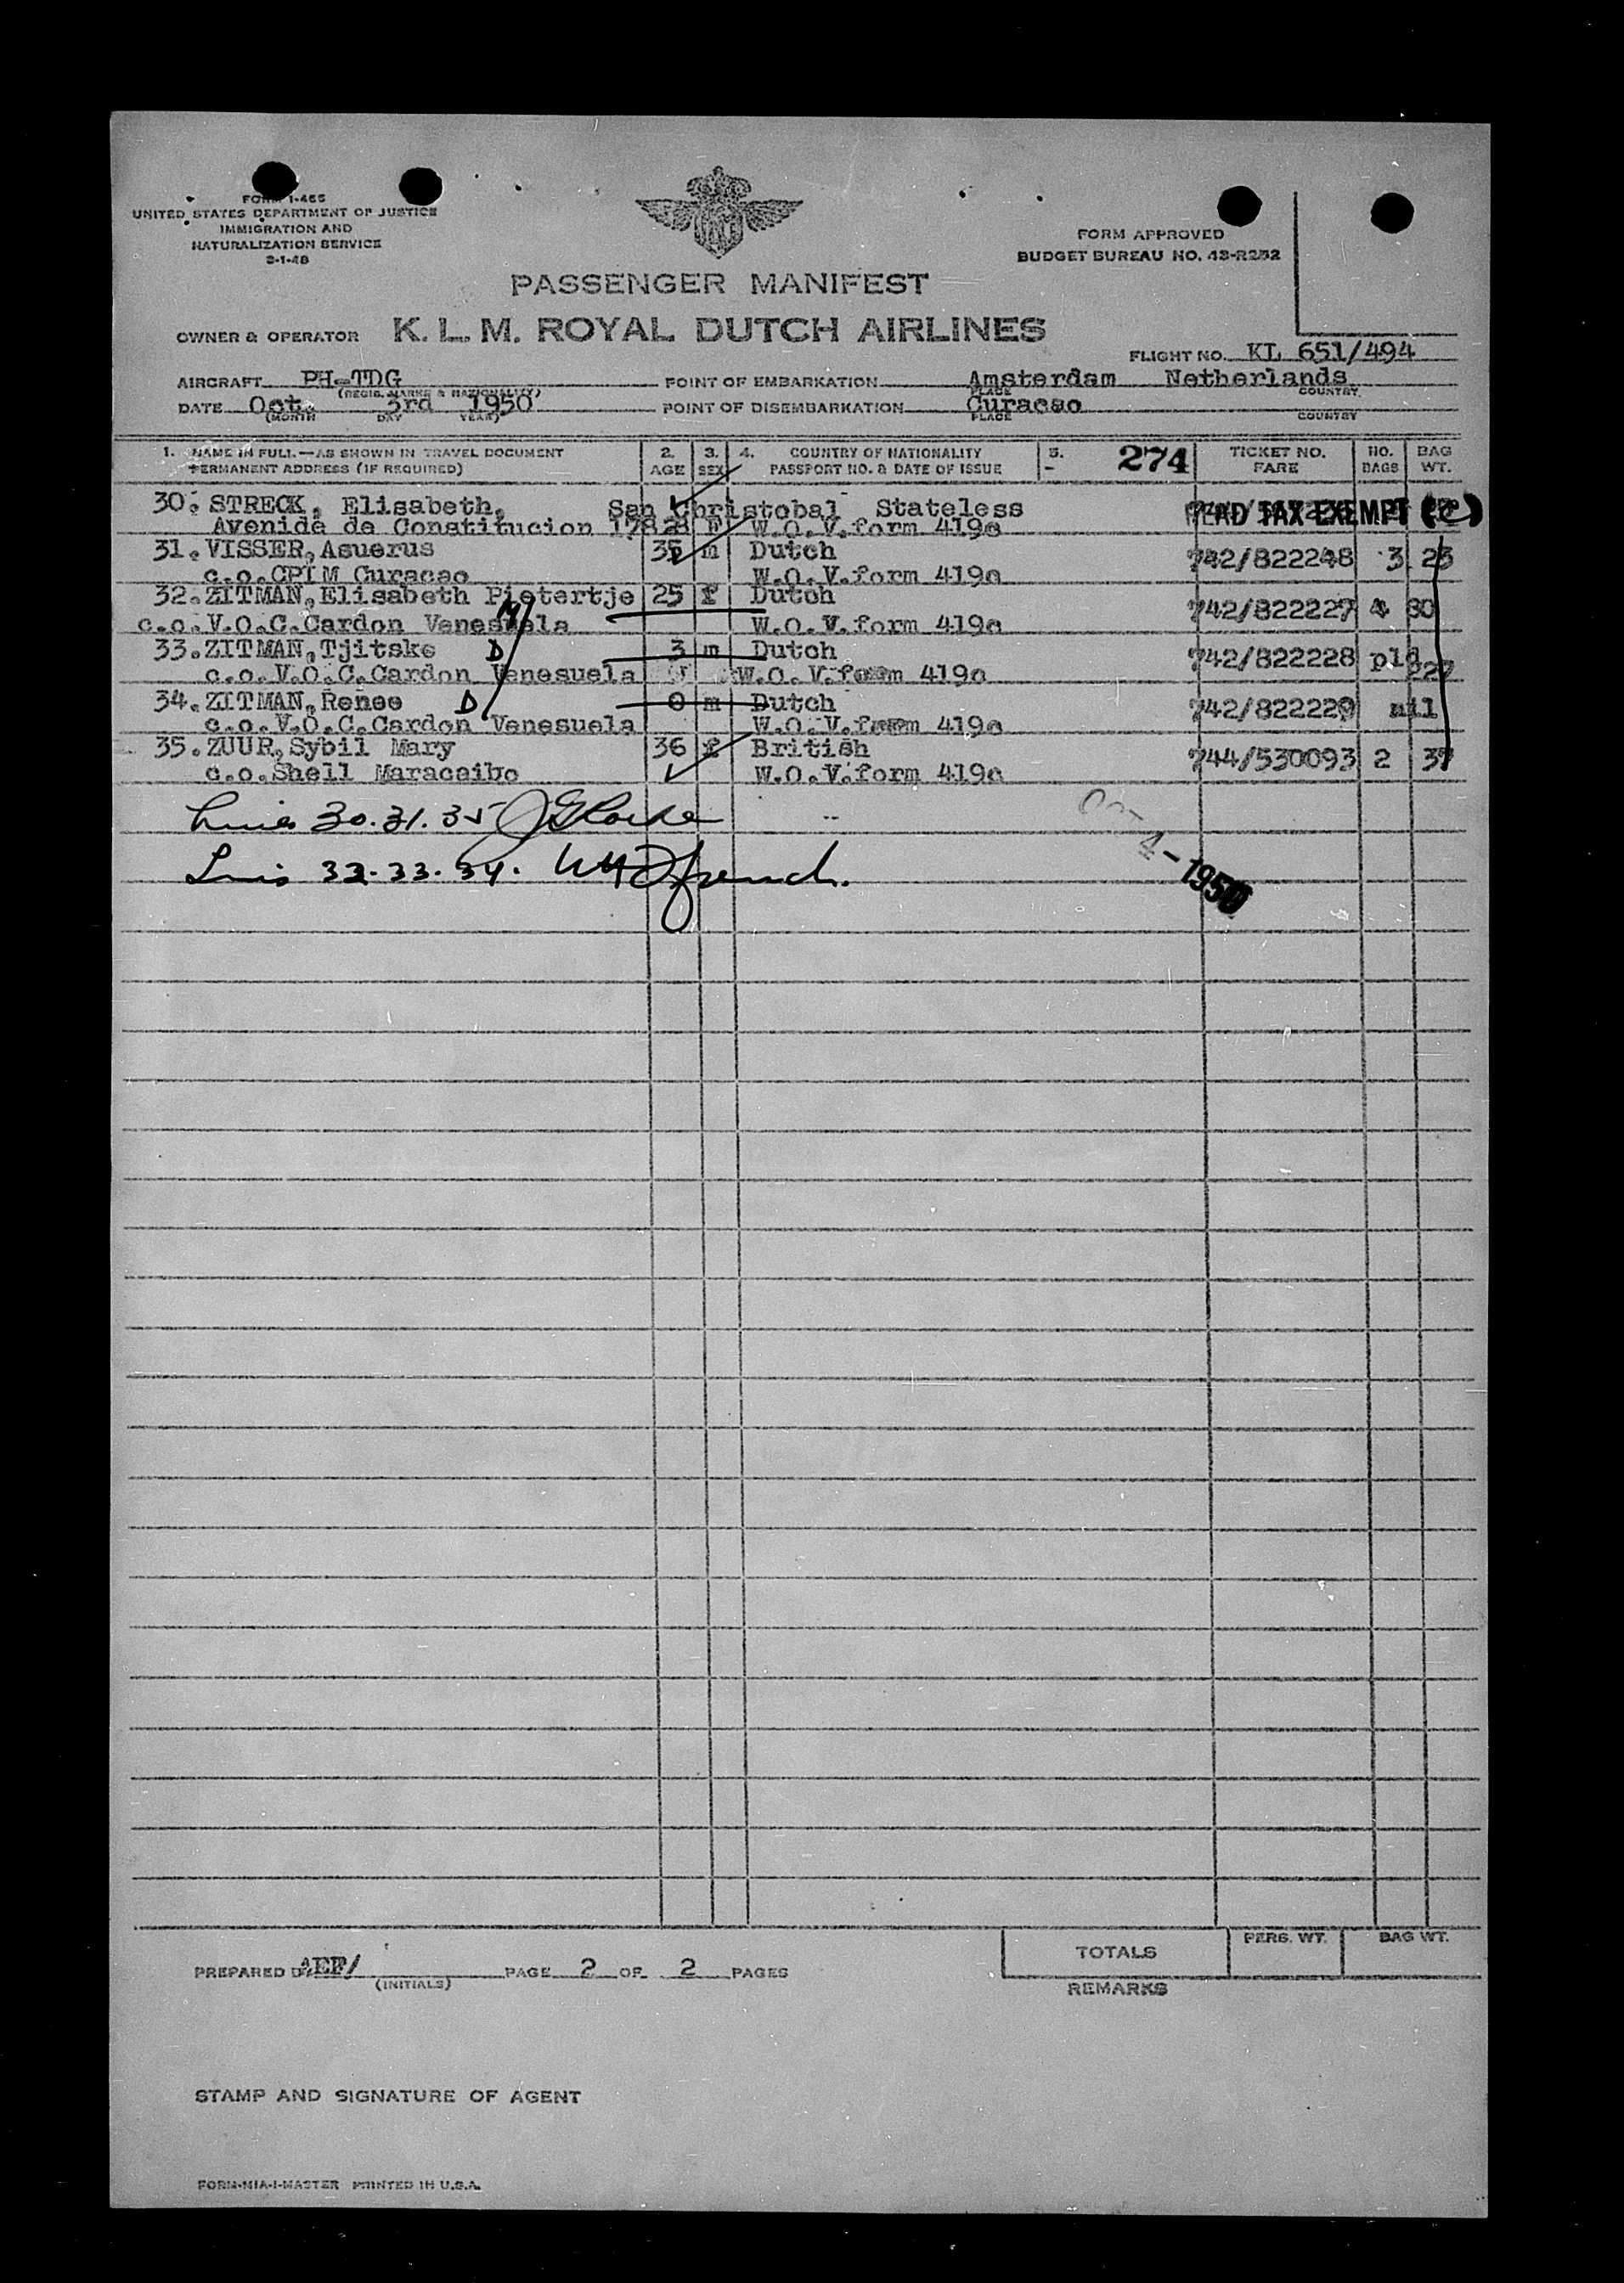 FORM I-466
UNITED STATES DEPARTMENT OF JUSTICE
IMMIGRATION AND
NATURALIZATION SERVICE
FORM APPROVED
BUDGET BUREAU NO. 43-R252
PASSENGER MANIFEST
OWNER & OPERATOR K. L. M. ROYAL DUTCH AIRLINES
FLIGHT NO. KL 651/494
AIRCRAFT PH-TDG POINT OF EMBARKATION Amsterdam Netherlands
(REGIS. MARKS & NATIONALITY) PLACE COUNTRY
DATE Oct. 3rd 1950 POINT OF DISEMBARKATION Curacao
(MONTH DAY YEAR) PLACE COUNTRY
1. NAME IN FULL.—AS SHOWN IN TRAVEL DOCUMENT 2. 3. 4. COUNTRY OF NATIONALITY 5. 274 TICKET NO. NO. BAG
PERMANENT ADDRESS (IF REQUIRED) AGE SEX PASSPORT NO. & DATE OF ISSUE - FARE BAGS WT.
30. STRECK, Elisabeth, San Christobal Stateless HEAD TAX EXEMPT (c)
Avenida de Constitucion F W.O.V.form 419c
31. VISSER, Asuerus 35 m Dutch 742/822248 3 23
c.o.CPIM Curacao W.O.V.form 419c
32. ZITMAN, Elisabeth Pietertje 25 f Dutch 742/822227 4 80
c.o.V.O.C.Cardon Venesuela W.O.V.form 419c
33. ZITMAN, Tjitske D 3 m Dutch 742/822228 pld
c.o.V.O.C.Cardon Venesuela W.O.V.form 419c 227
34. ZITMAN, Renee D 0 m Dutch 742/822229 nil
c.o.V.O.C.Cardon Venesuela W.O.V.form 419c
35. ZUUR, Sybil Mary 36 f British 744/530093 2 37
c.o.Shell Maracaibo W.O.V.form 419c
Lines 30.31.35
Lines 32.33.34.
4-1950
PREPARED BY AEF/ PAGE 2 OF 2 PAGES
(INITIALS)
TOTALS PERS. WT. BAG WT.
REMARKS
STAMP AND SIGNATURE OF AGENT
FORM-MIA-I-MASTER PRINTED IN U.S.A.